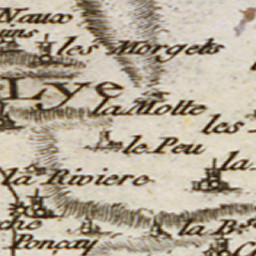 Naux
les Morgets
Lye
la Motte
les
le Peu
la
la Riviere
la B.
Ponçay